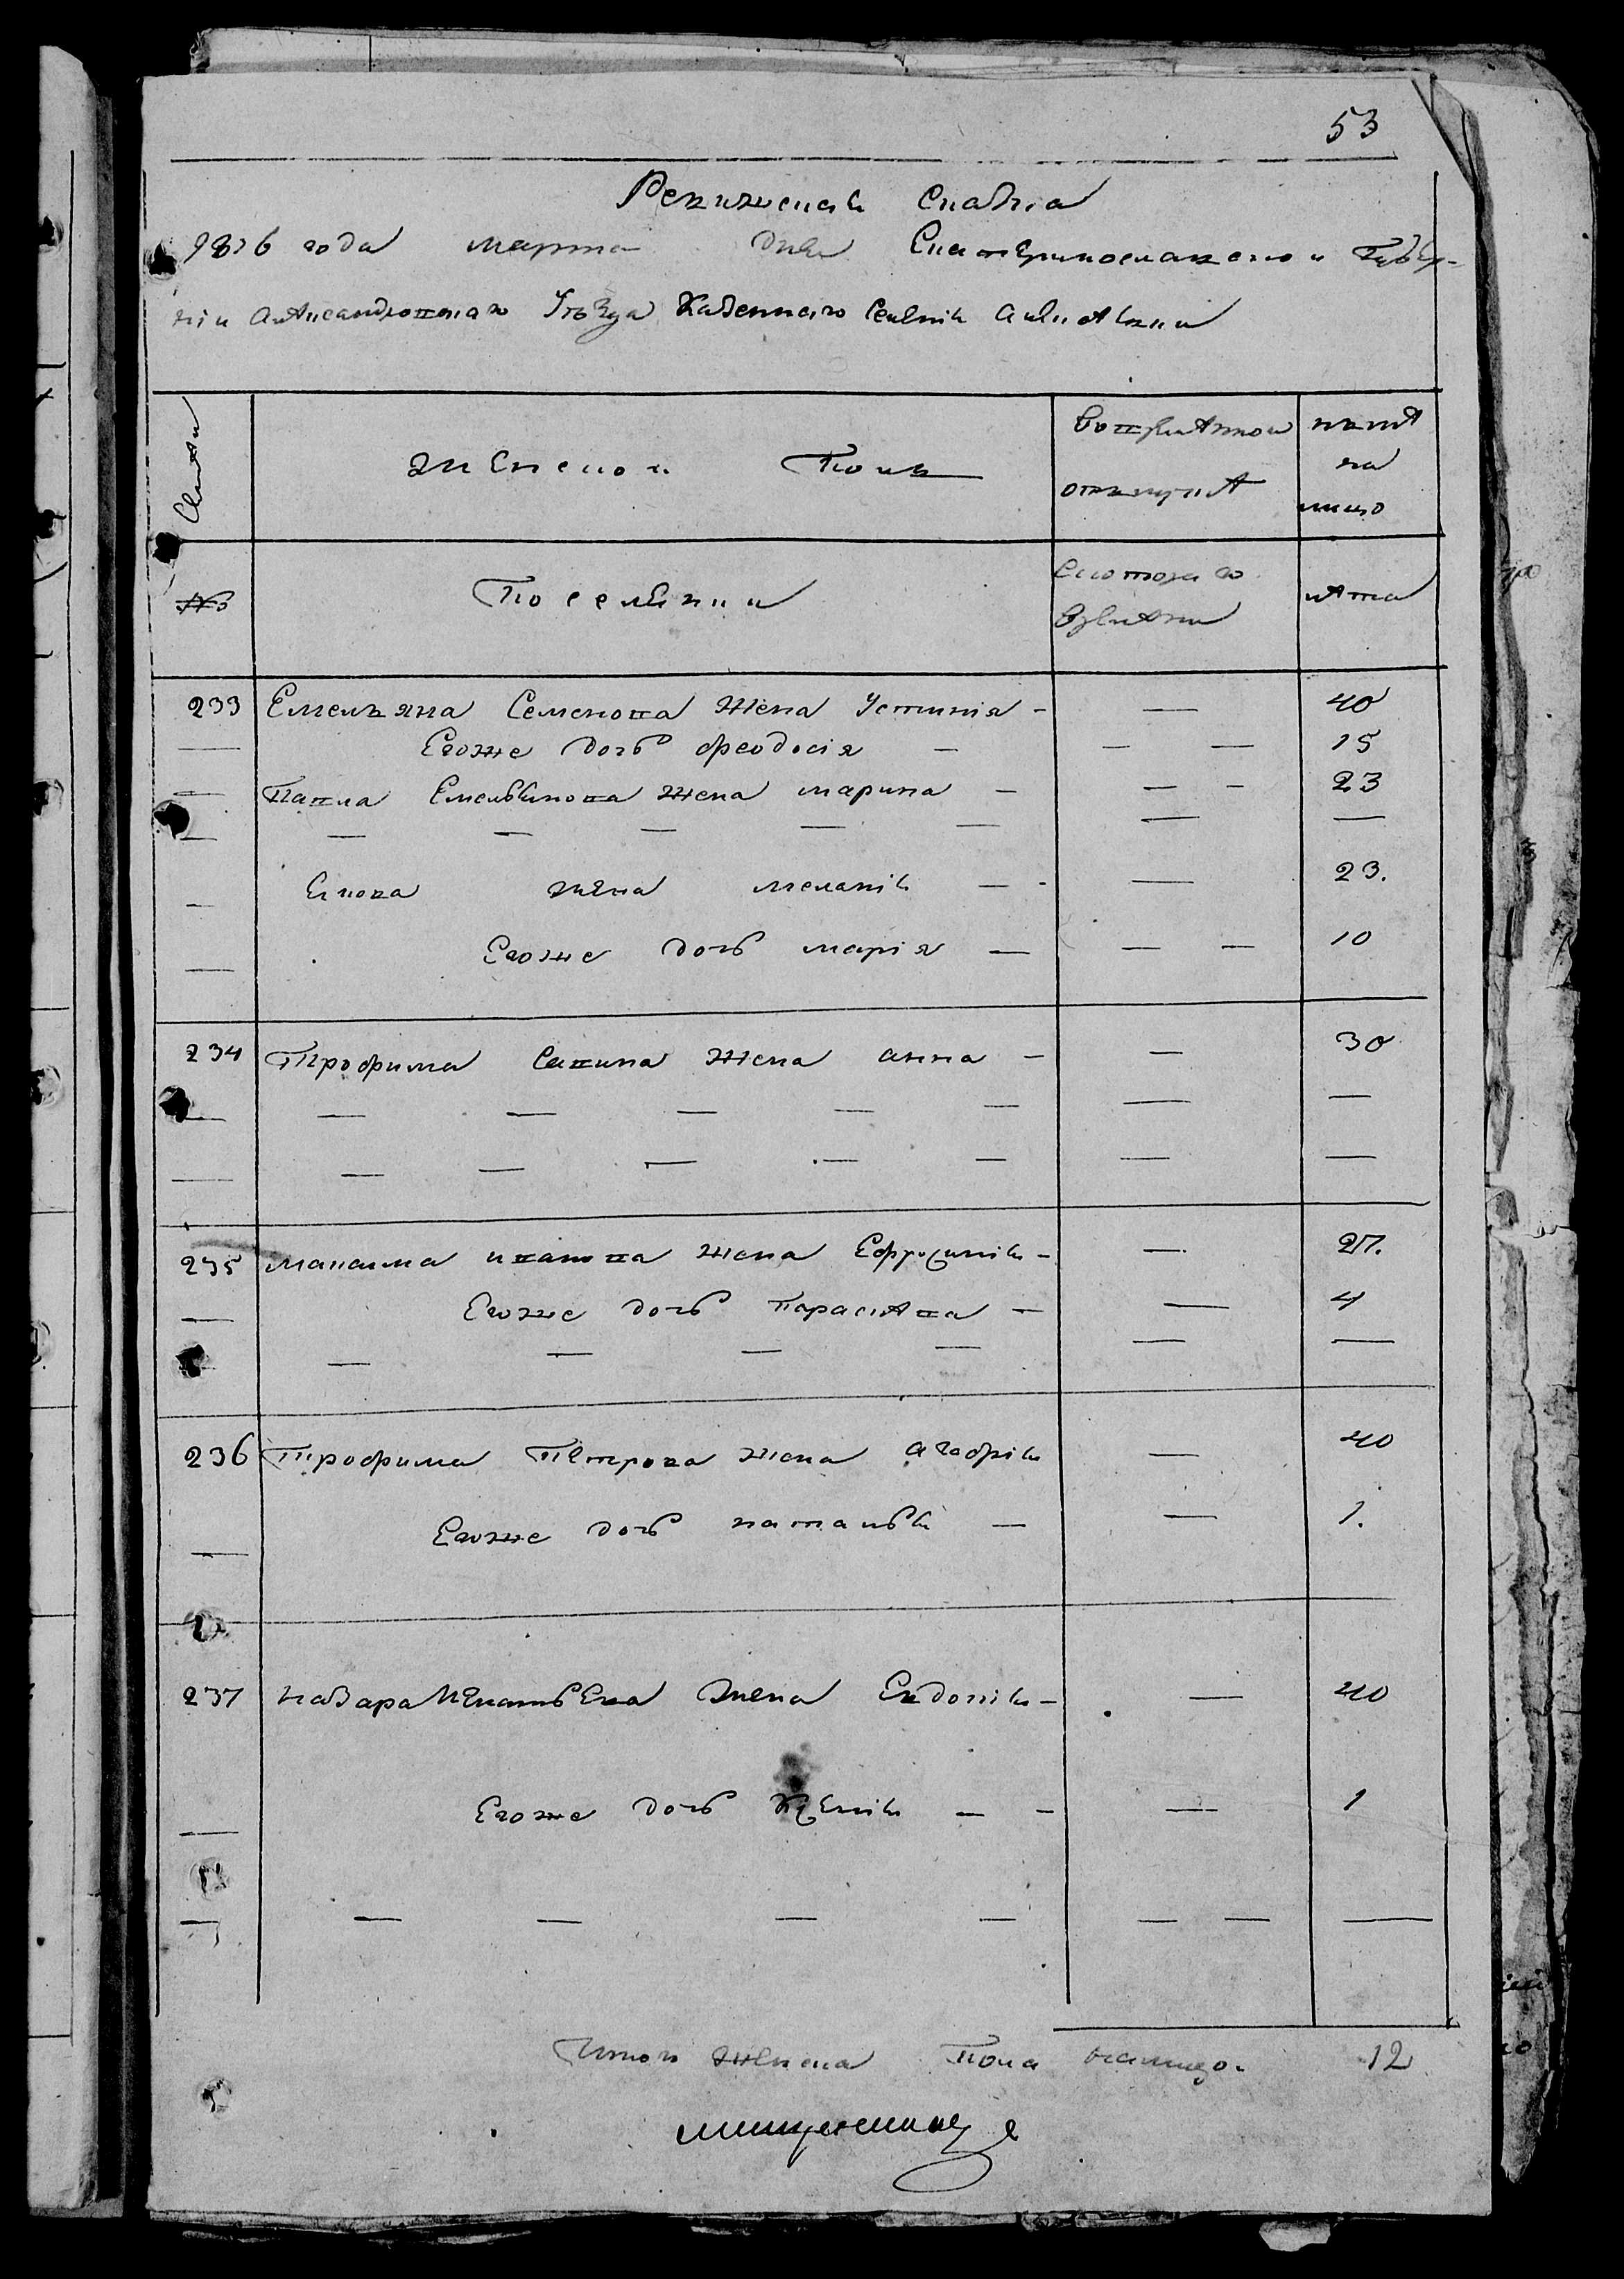 53
Ревижская Сказка
1816 года марта дня Екатеринославской Губер-
ніи Александровскаго Уезда Казеннаго Селенія
Семьи
женской Полъ
Вовременной
отлучке
ныне
на
лицо
№
Поселянки
Скотораго
времени
лета
233 Емельяна Семенова жена Устинія - — 40
Егоже дочь феодосія — — — 15
Павла Емельянова жена марина — — - 23
— — — — — — —
Якова жена меланія — - — 23.
Егоже дочь марія — — — 10
234 Трофима Савина жена анна - — 30
— — — — — — —
— — — — — — —
235 максима иванова жена Ефросинія - — 27.
Егоже дочь Параскева — — 4
— — — — — —
236 трофима Петрова жена агафія — 40
Егоже дочь наталья — — 1.
237 назара Игнатьева жена Евдокія - — 40
Егоже дочь Ксенія — - — 1
— — — — — — —
Итого женска Пола налицо. 12